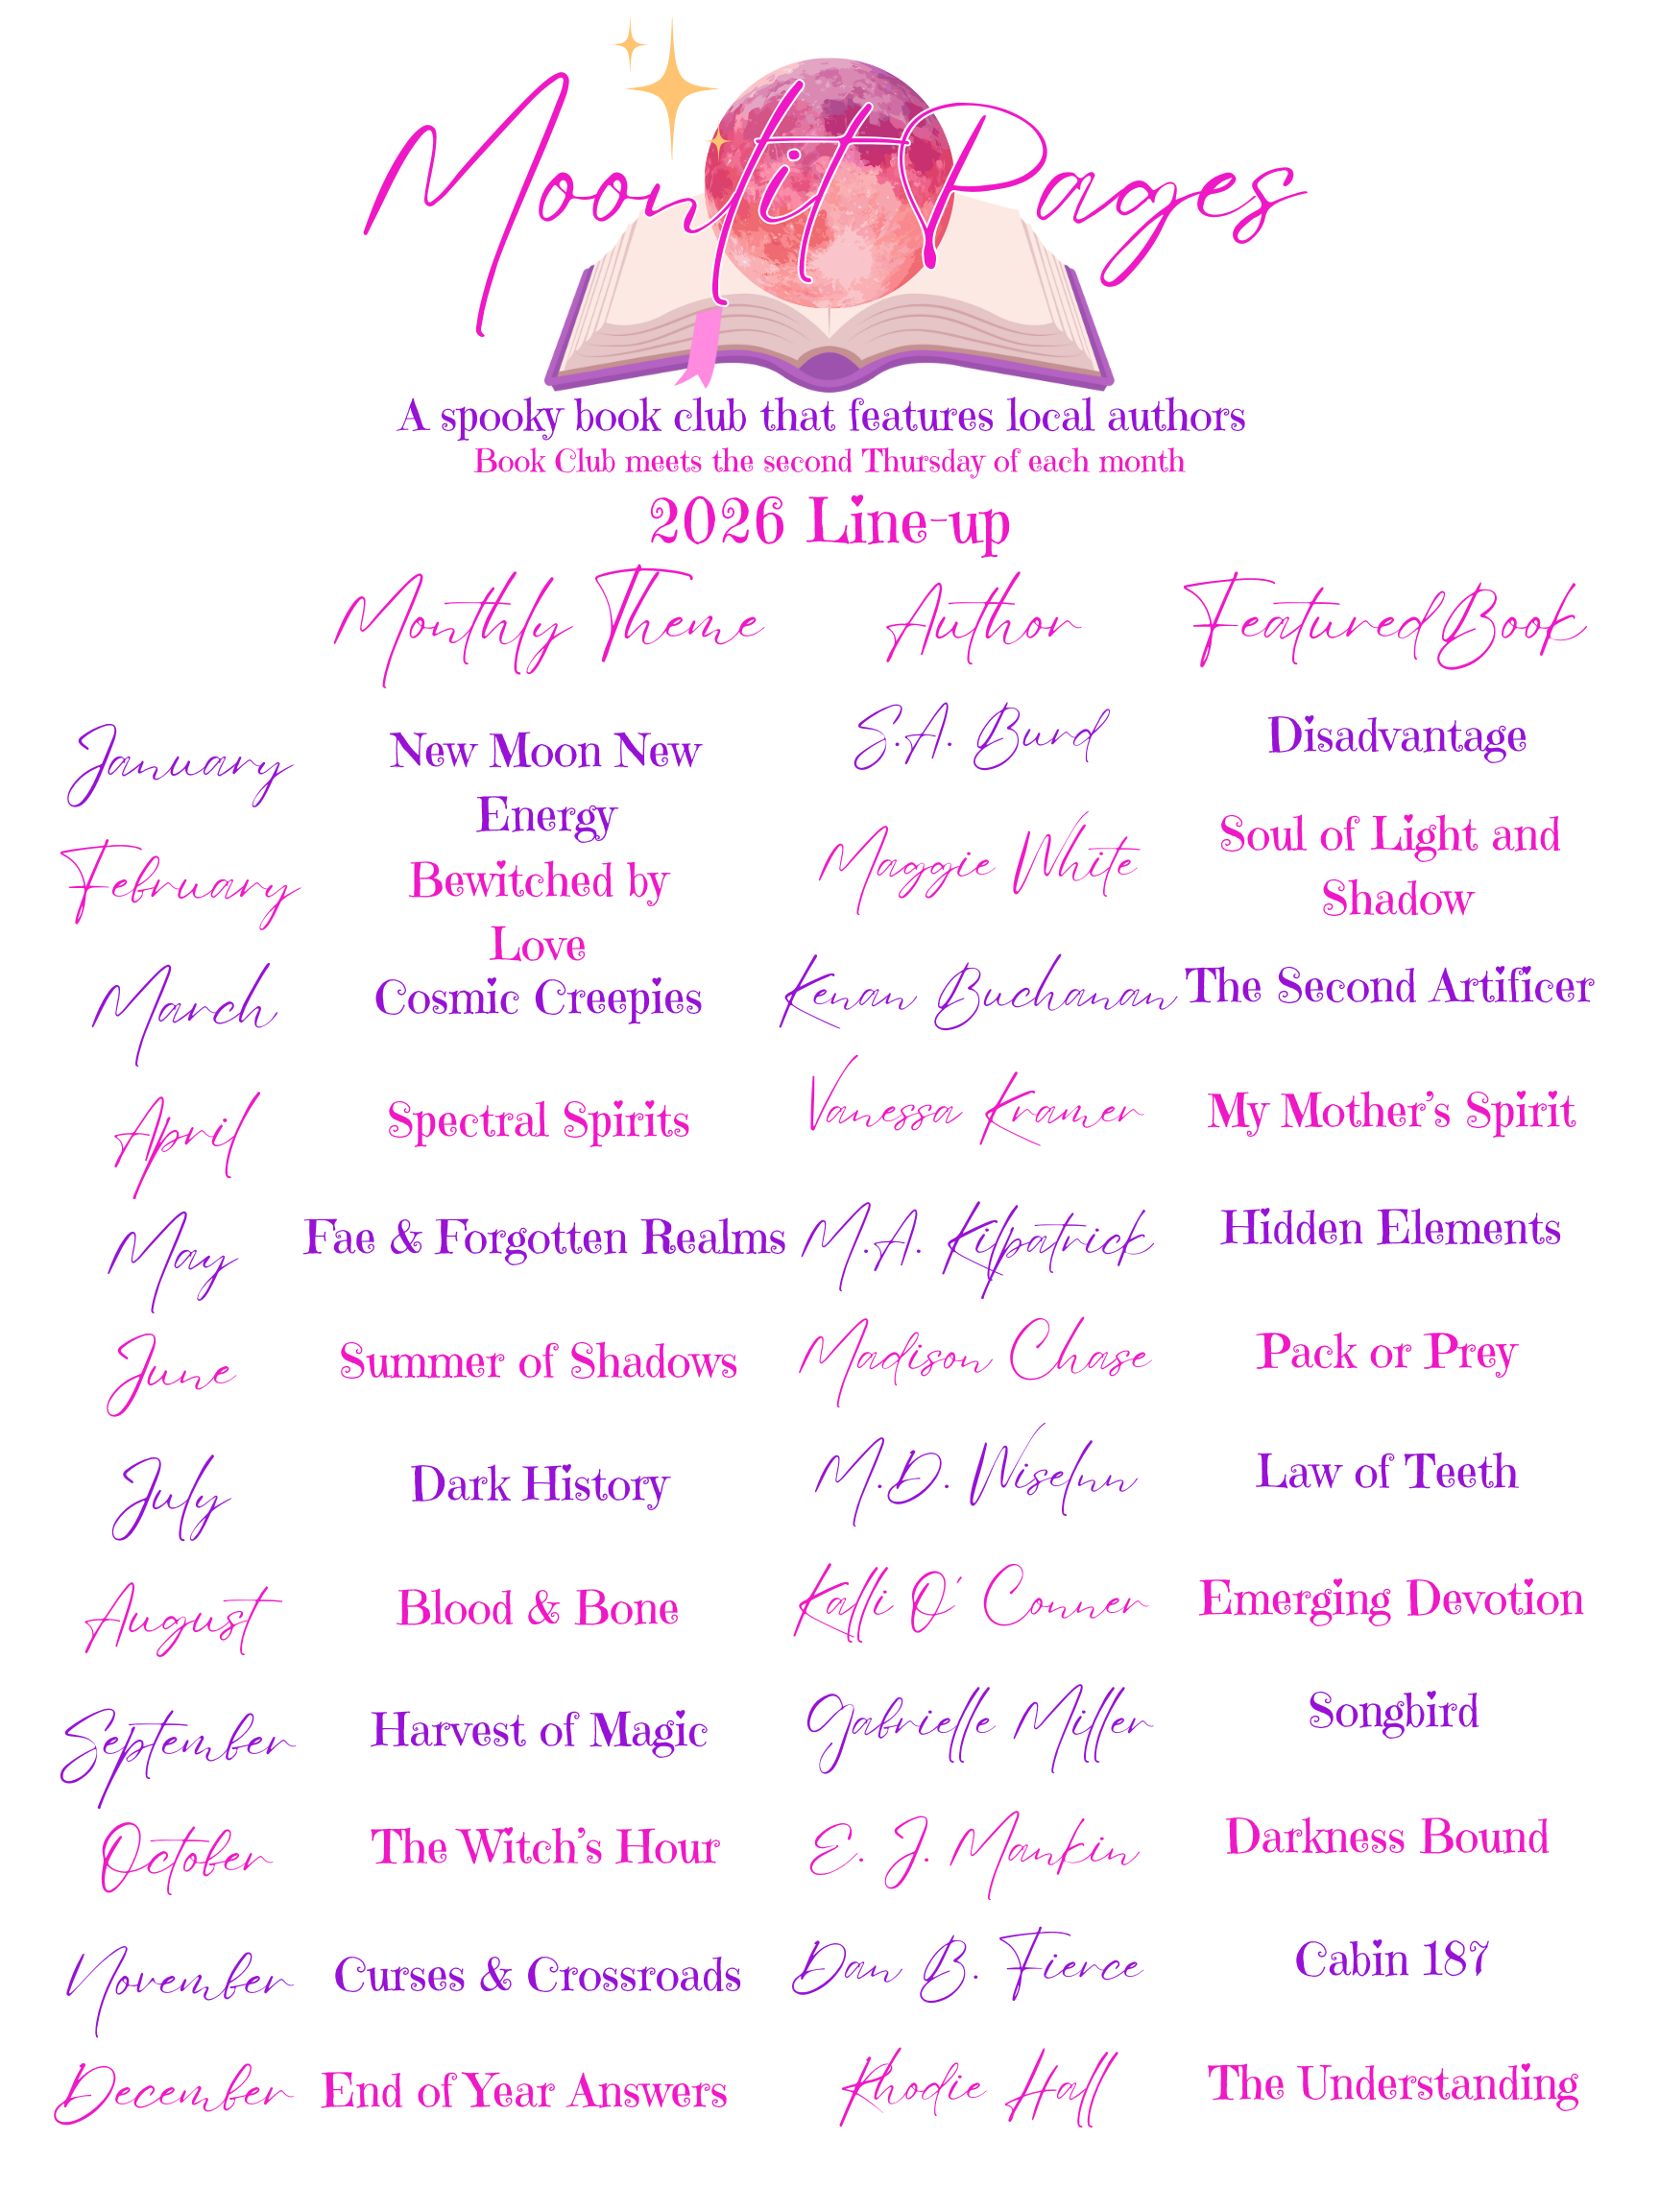 Moonlit Pages
A spooky book club that features local authors
Book Club meets the second Thursday of each month
2026 Line-up
Monthly Theme Author Featured Book
January New Moon New S.A. Burd Disadvantage
Energy
February Bewitched by Maggie White Soul of Light and
Love Shadow
March Cosmic Creepies Kenan Buchanan The Second Artificer
April Spectral Spirits Vanessa Kramer My Mother's Spirit
May Fae & Forgotten Realms M.A. Kilpatrick Hidden Elements
June Summer of Shadows Madison Chase Pack or Prey
July Dark History M.D. Law of Teeth
August Blood & Bone Kalli O' Conner Emerging Devotion
September Harvest of Magic Gabrielle Miller Songbird
October The Witch's Hour E. J. Mankin Darkness Bound
November Curses & Crossroads Dan B. Fierce Cabin 187
December End of Year Answers Rhodie Hall The Understanding